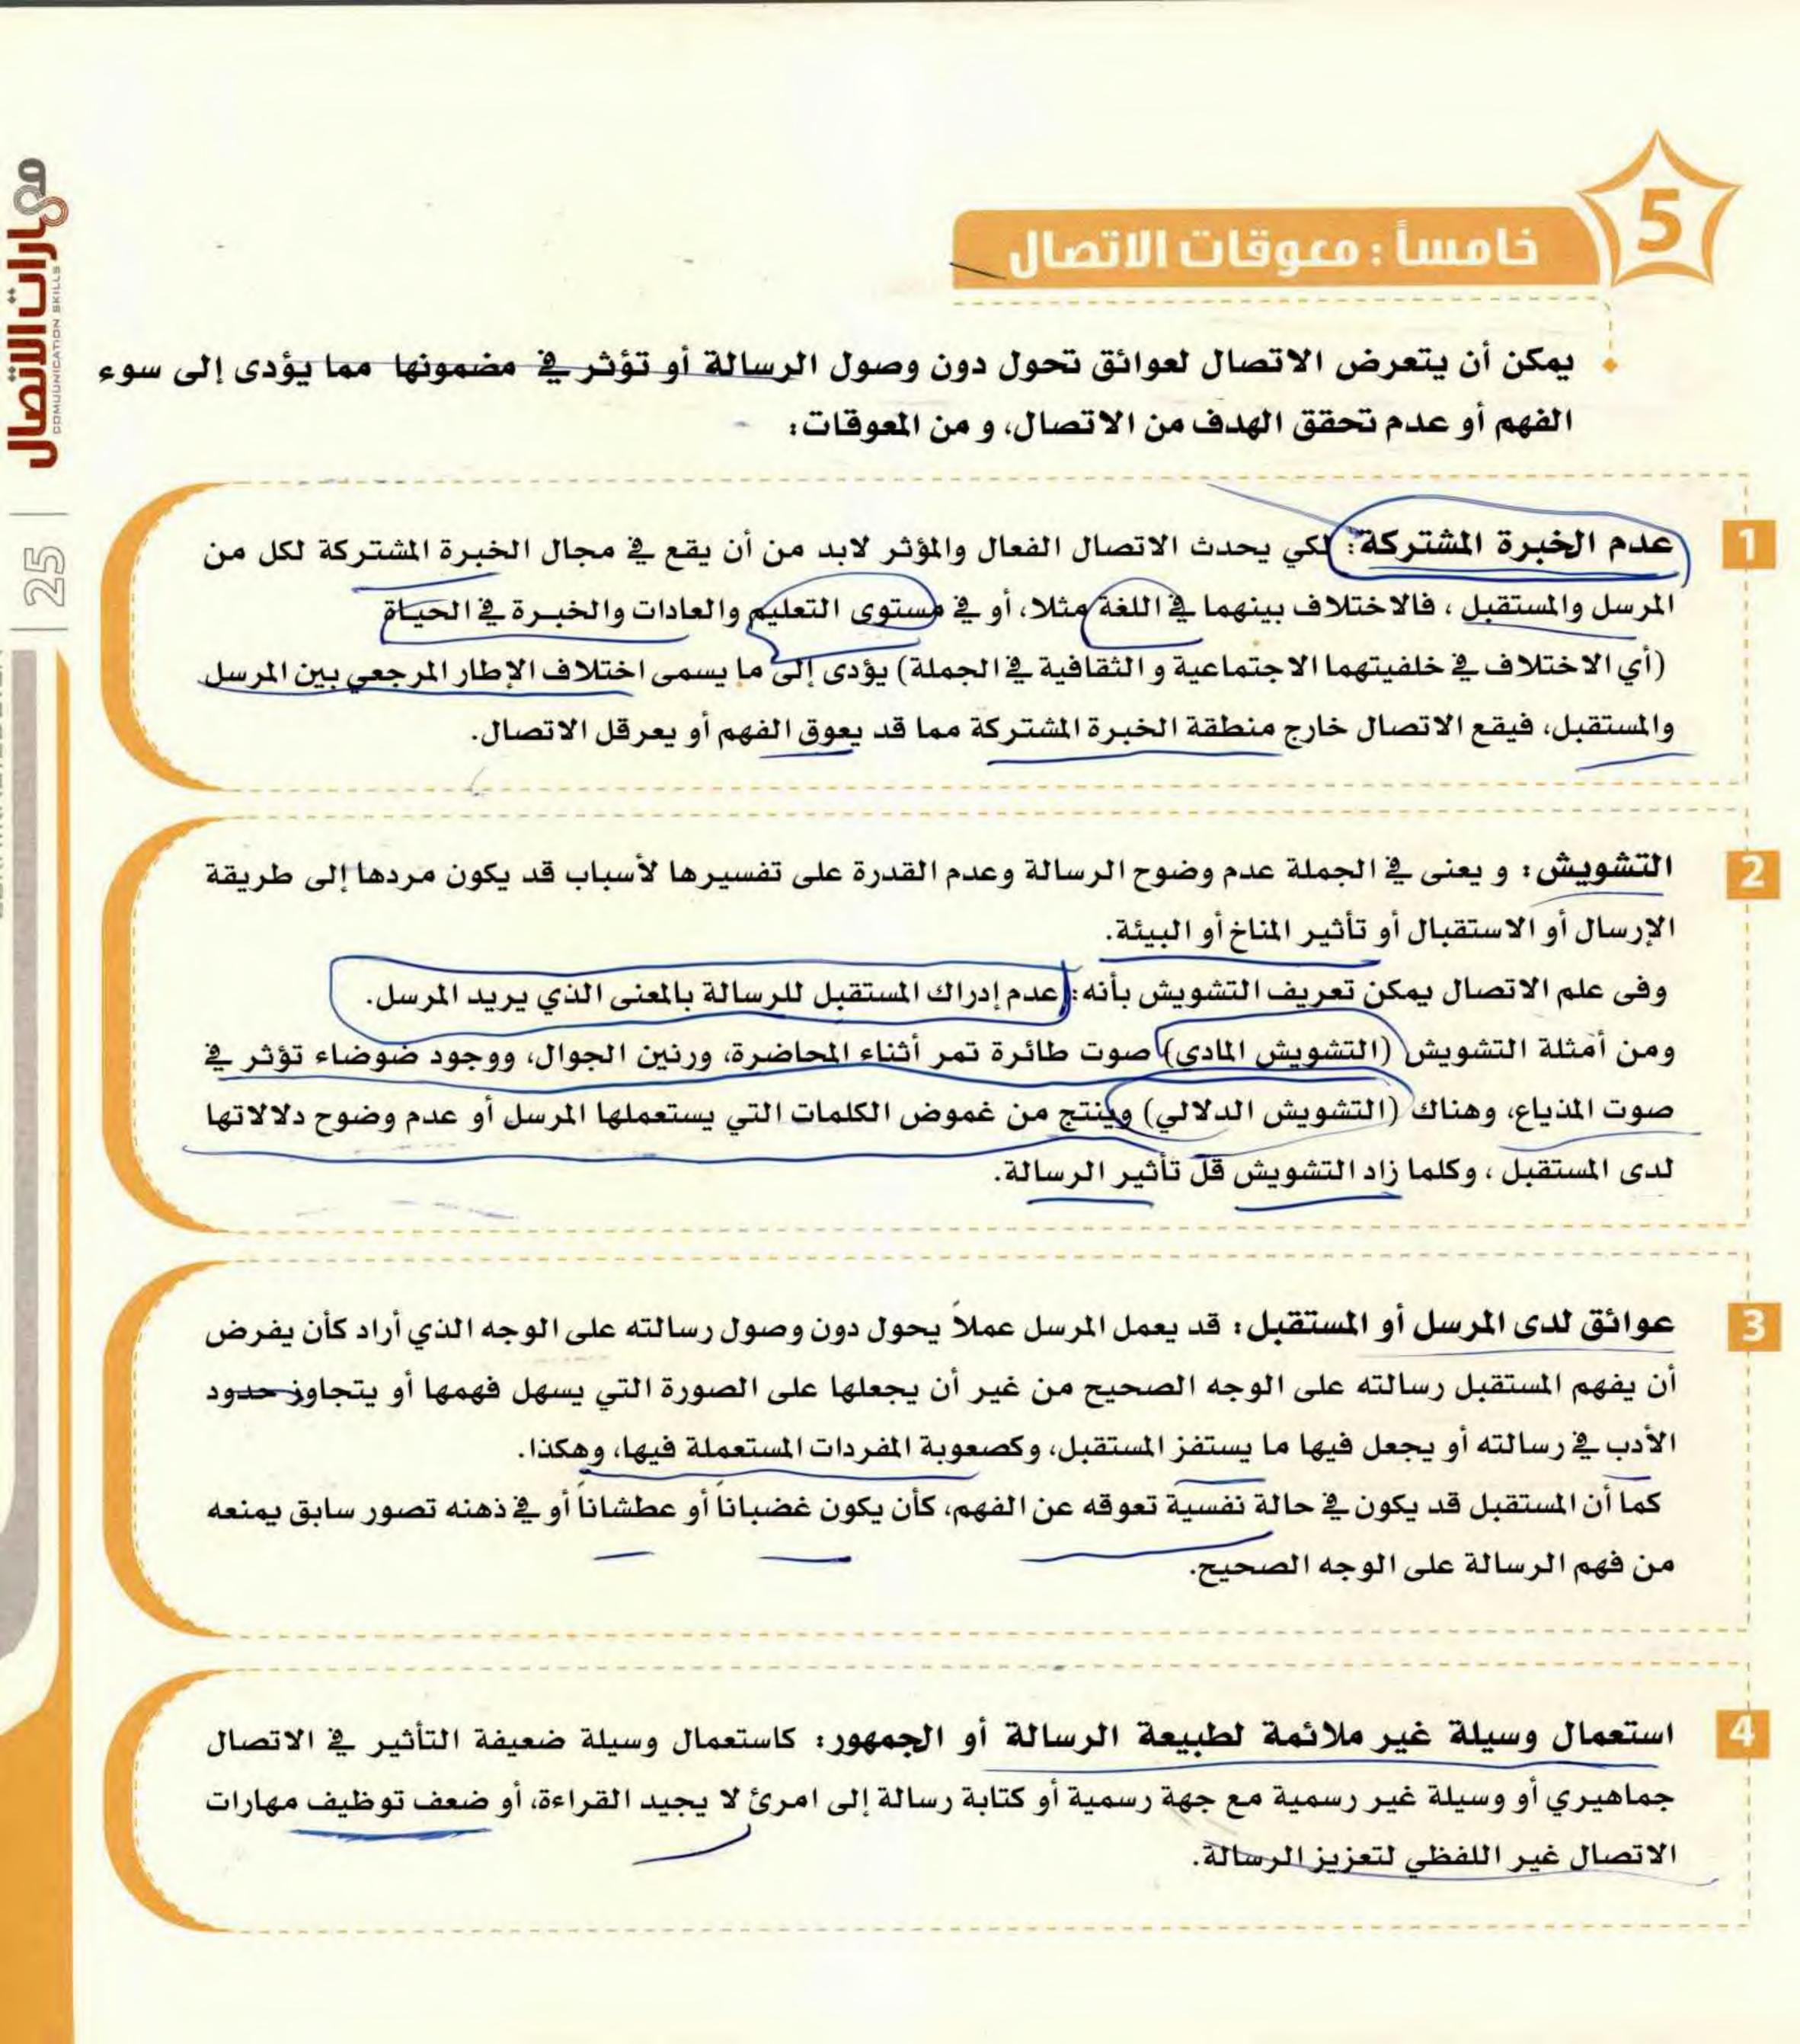 5
خامساً : معوقات الاتصال
يمكن أن يتعرض الاتصال لعوائق تحول دون وصول الرسالة أو تؤثر في مضمونها مما يؤدى إلى سوء
الفهم أو عدم تحقق الهدف من الاتصال، و من المعوقات:
1
عدم الخبرة المشتركة: لكي يحدث الاتصال الفعال والمؤثر لابد من أن يقع في مجال الخبرة المشتركة لكل من
المرسل والمستقبل ، فالاختلاف بينهما في اللغة مثلا، أو في مستوى التعليم والعادات والخبرة في الحياة
(أي الاختلاف في خلفيتهما الاجتماعية و الثقافية في الجملة) يؤدى إلى ما يسمى اختلاف الإطار المرجعي بين المرسل
والمستقبل، فيقع الاتصال خارج منطقة الخبرة المشتركة مما قد يعوق الفهم أو يعرقل الاتصال.
2
التشويش: و يعنى في الجملة عدم وضوح الرسالة وعدم القدرة على تفسيرها لأسباب قد يكون مردها إلى طريقة
الإرسال أو الاستقبال أو تأثير المناخ أو البيئة.
وفى علم الاتصال يمكن تعريف التشويش بأنه: عدم إدراك المستقبل للرسالة بالمعنى الذي يريد المرسل.
ومن أمثلة التشويش (التشويش المادى) صوت طائرة تمر أثناء المحاضرة، ورنين الجوال، ووجود ضوضاء تؤثر في
صوت المذياع، وهناك (التشويش الدلالي) وينتج من غموض الكلمات التي يستعملها المرسل أو عدم وضوح دلالاتها
لدى المستقبل ، وكلما زاد التشويش قل تأثير الرسالة.
3
عوائق لدى المرسل أو المستقبل: قد يعمل المرسل عملاً يحول دون وصول رسالته على الوجه الذي أراد كأن يفرض
أن يفهم المستقبل رسالته على الوجه الصحيح من غير أن يجعلها على الصورة التي يسهل فهمها أو يتجاوز حدود
الأدب في رسالته أو يجعل فيها ما يستفز المستقبل، وكصعوبة المفردات المستعملة فيها، وهكذا.
كما أن المستقبل قد يكون في حالة نفسية تعوقه عن الفهم، كأن يكون غضباناً أو عطشاناً أو في ذهنه تصور سابق يمنعه
من فهم الرسالة على الوجه الصحيح.
4
استعمال وسيلة غير ملائمة لطبيعة الرسالة أو الجمهور: كاستعمال وسيلة ضعيفة التأثير في الاتصال
جماهيري أو وسيلة غير رسمية مع جهة رسمية أو كتابة رسالة إلى امرئ لا يجيد القراءة، أو ضعف توظيف مهارات
الاتصال غير اللفظي لتعزيز الرسالة.
مهارات الاتصال
COMUNICATION SKILLS
25